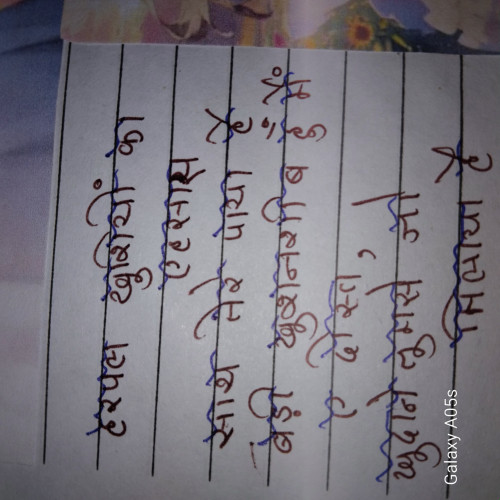 हरपल खुशियों का
एहसास
साथ तेरे पाया है
बड़ी खुशनशीब हूँ मैं
ए दोस्त,
खुदाने तुमसे जो
मिलाया है
Galaxy A05s